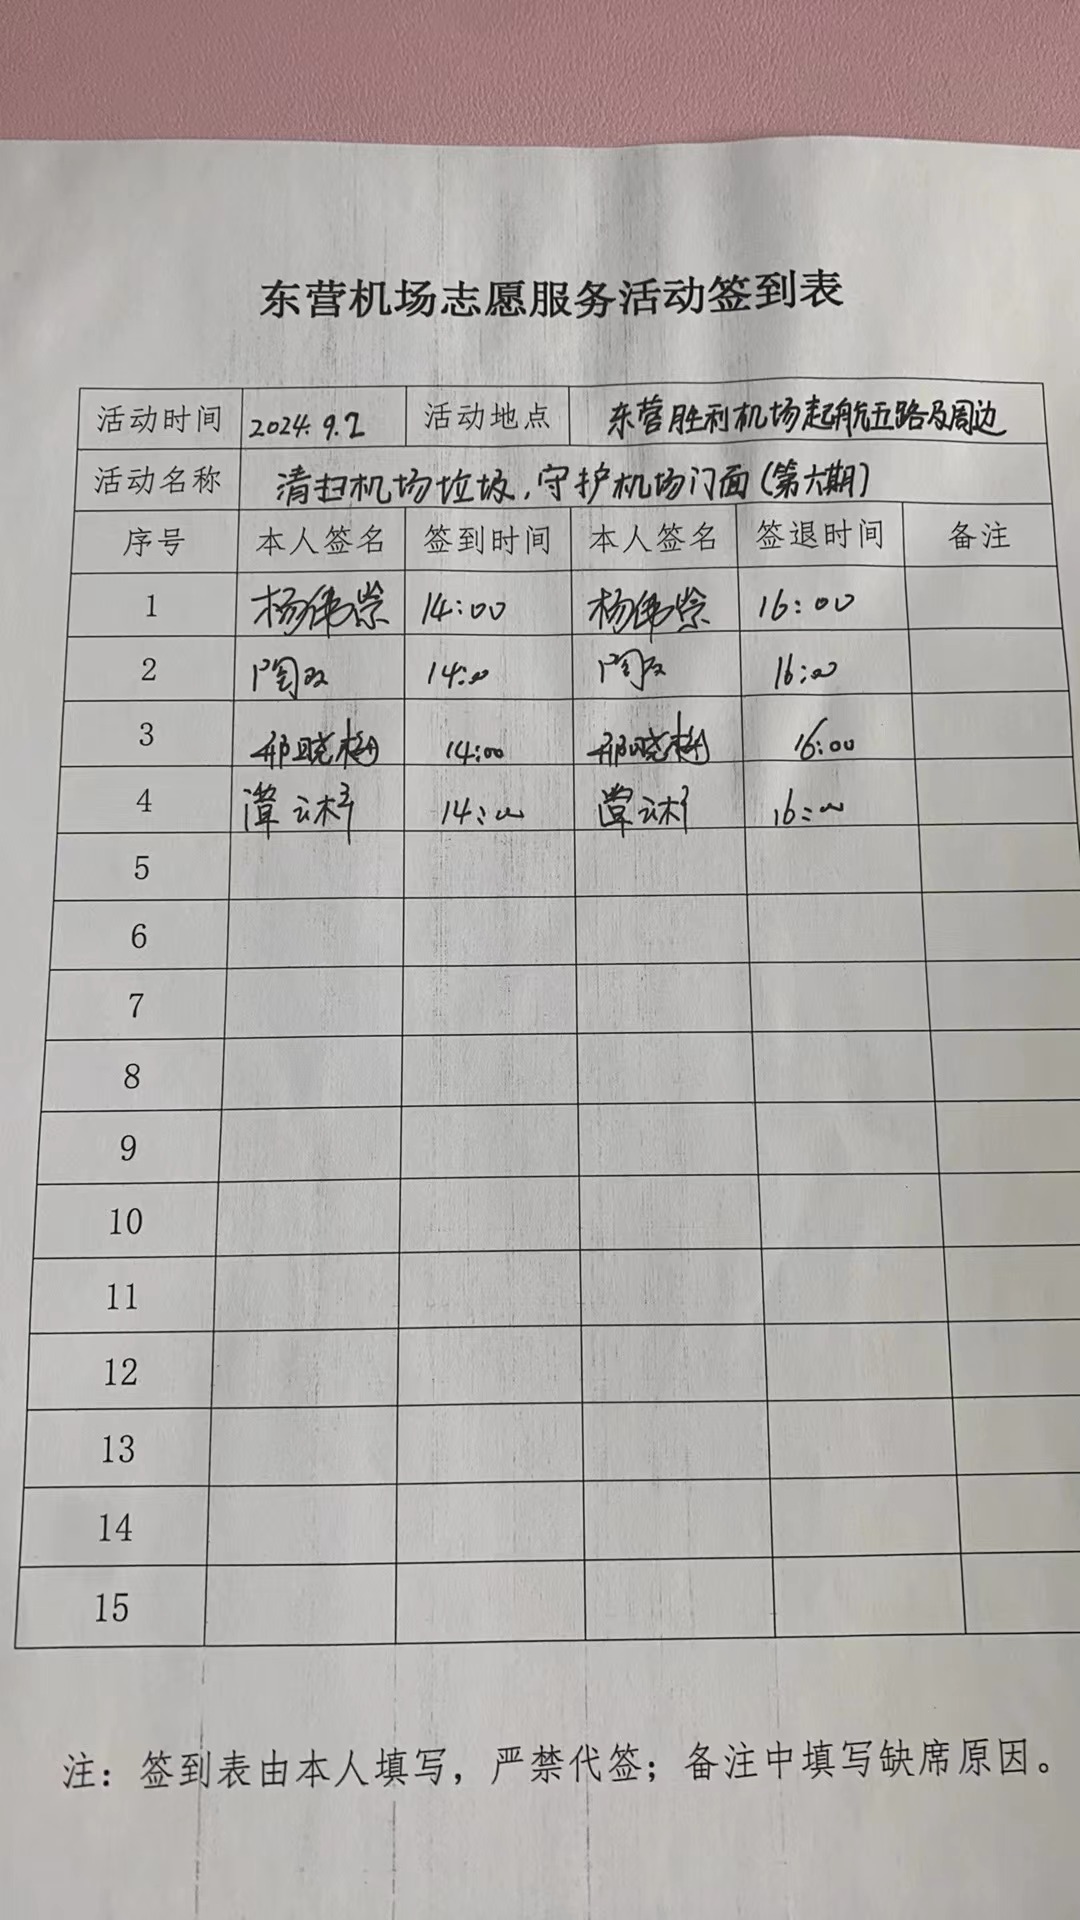 东营机场志愿服务活动签到表
活动时间 2024.9.2 活动地点 东营胜利机场起航五路及周边
活动名称 清扫机场垃圾,守护机场门面(第六期)
序号 本人签名 签到时间 本人签名 签退时间 备注
1 杨伟崇 14:00 杨伟崇 16:00
2 14:00 16:00
3 邢晓梅 14:00 邢晓梅 16:00
4 14:00 16:00
5
6
7
8
9
10
11
12
13
14
15
注：签到表由本人填写，严禁代签；备注中填写缺席原因。